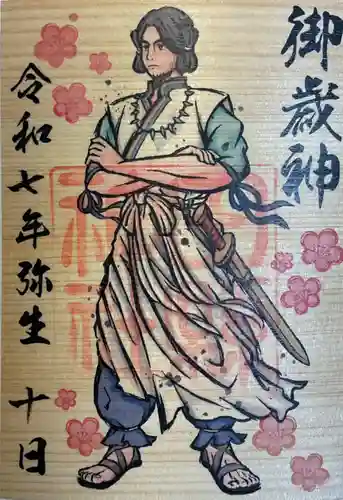 御歳神
令和七年弥生 十日